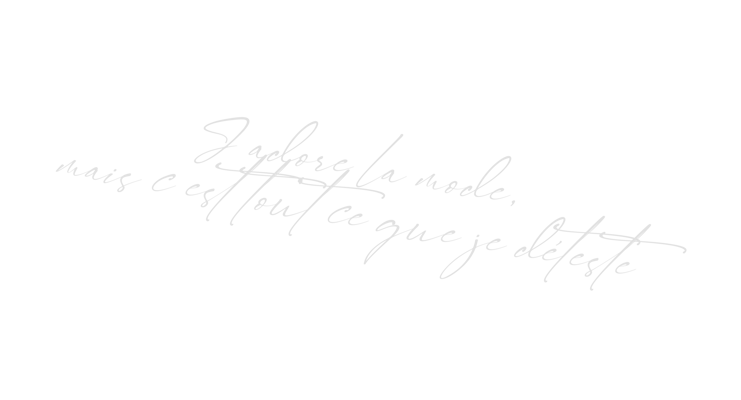 J'adore la mode,
mais c'est tout ce que je déteste